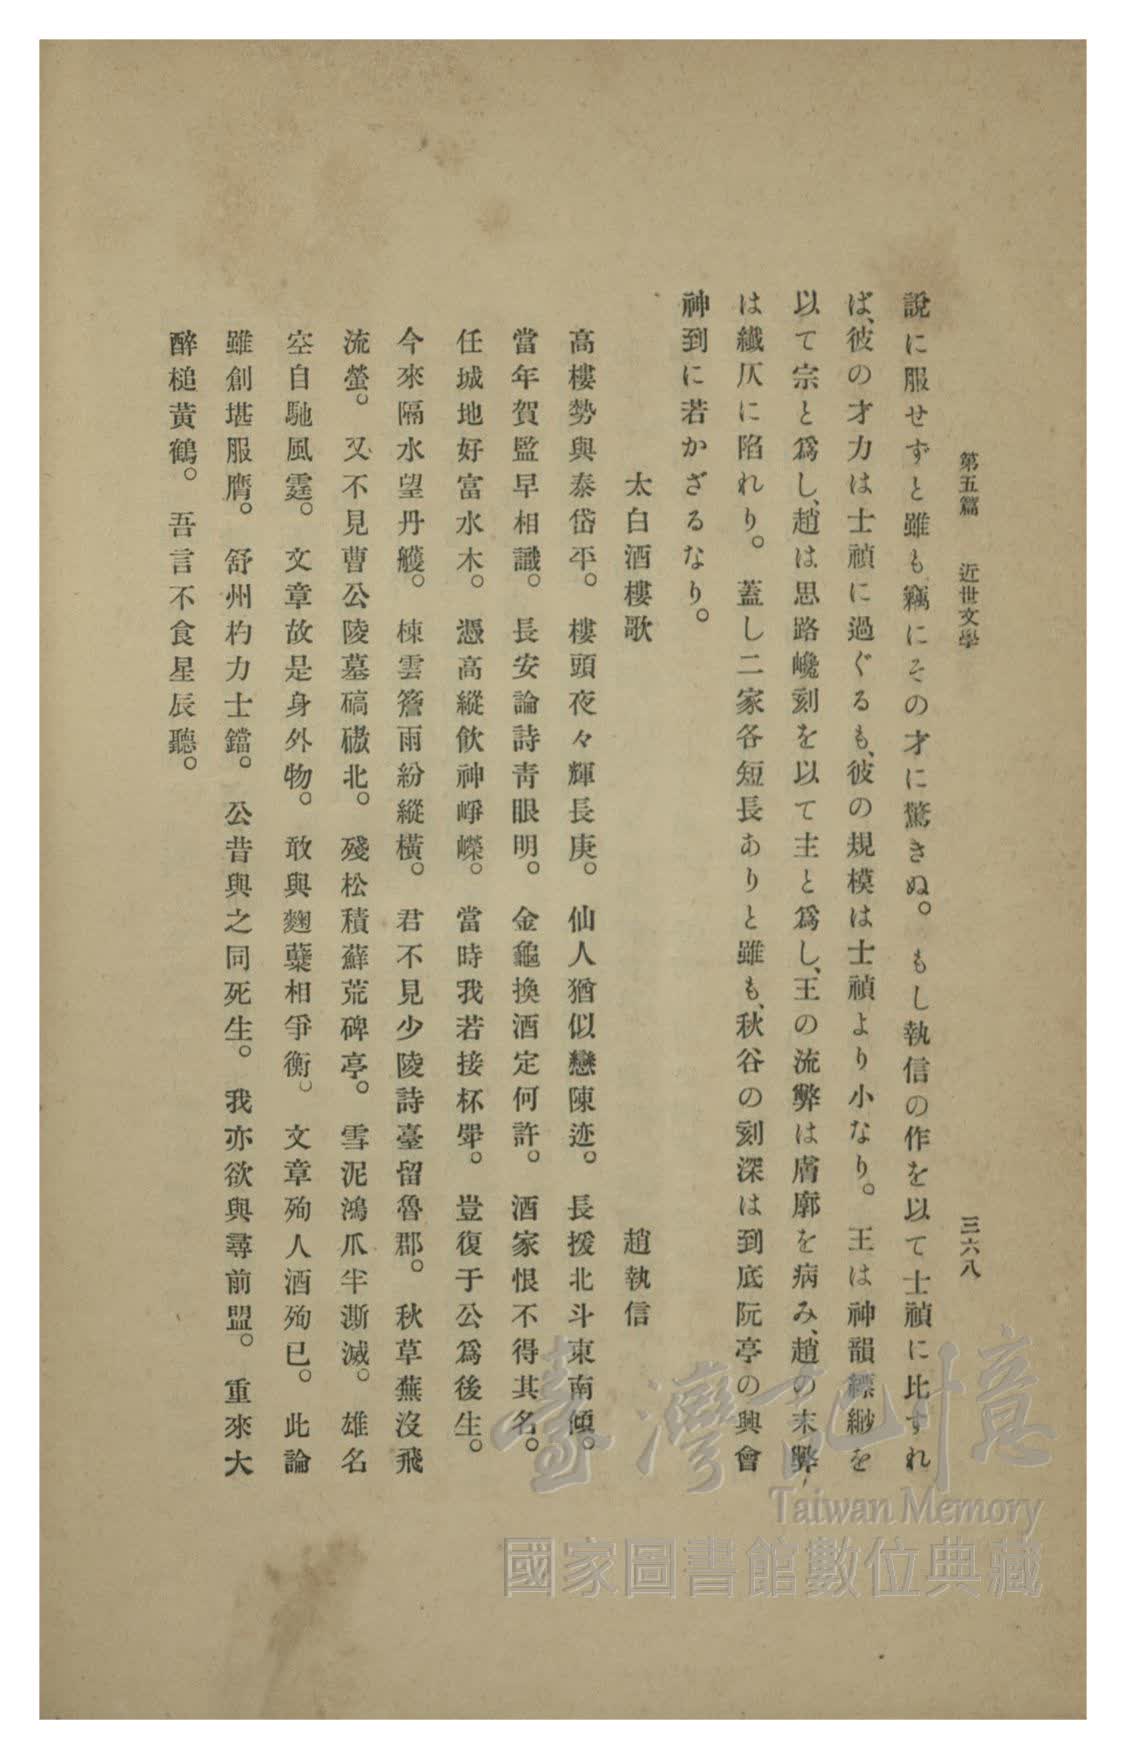 第五篇　近世文學　三六八
說に服せずと雖も竊にその才に驚きぬ。もし執信の作を以て士禎に比すれ
ば、彼の才力は士禎に過ぐるも、彼の規模は士禎より小なり。王は神韻縹緲を
以て宗と爲し、趙は思路巉刻を以て主と爲し、王の流弊は膚廓を病み、趙の末弊
は纖仄に陷れり。蓋し二家各短長ありと雖も、秋谷の刻深は到底阮亭の興會
神到に若かざるなり。
太白酒樓歌　趙執信
高樓勢與泰岱平。樓頭夜々輝長庚。仙人猶似戀陳迹。長援北斗東南傾。
當年賀監早相識。長安論詩靑眼明。金龜換酒定何許。酒家恨不得其名。
任城地好富水木。憑高縱飮神崢嶸。當時我若接杯斝。豈復于公爲後生。
今來隔水望丹艧。棟雲簷雨紛縱橫。君不見少陵詩臺留魯郡。秋草蕪沒飛
流螢。又不見曹公陵墓碻磝北。殘松積蘚荒碑亭。雪泥鴻爪半澌滅。雄名
空自馳風霆。文章故是身外物。敢與麴蘖相爭衡。文章殉人酒殉己。此論
雖創堪服膺。舒州杓力士鐺。公昔與之同死生。我亦欲與尋前盟。重來大
醉槌黃鶴。吾言不食星辰聽。
臺灣記憶
Taiwan Memory
國家圖書館數位典藏